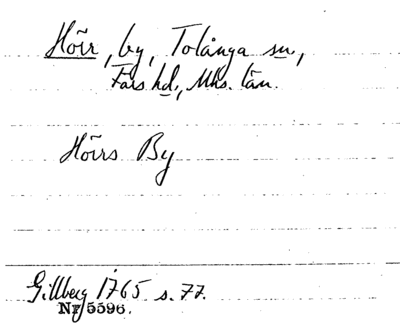 Höir, by, Tolånga sn,
Färs hd., Mhs. län.
Höirs By
Gillberg 1765 s. 77.
Nr 5596.